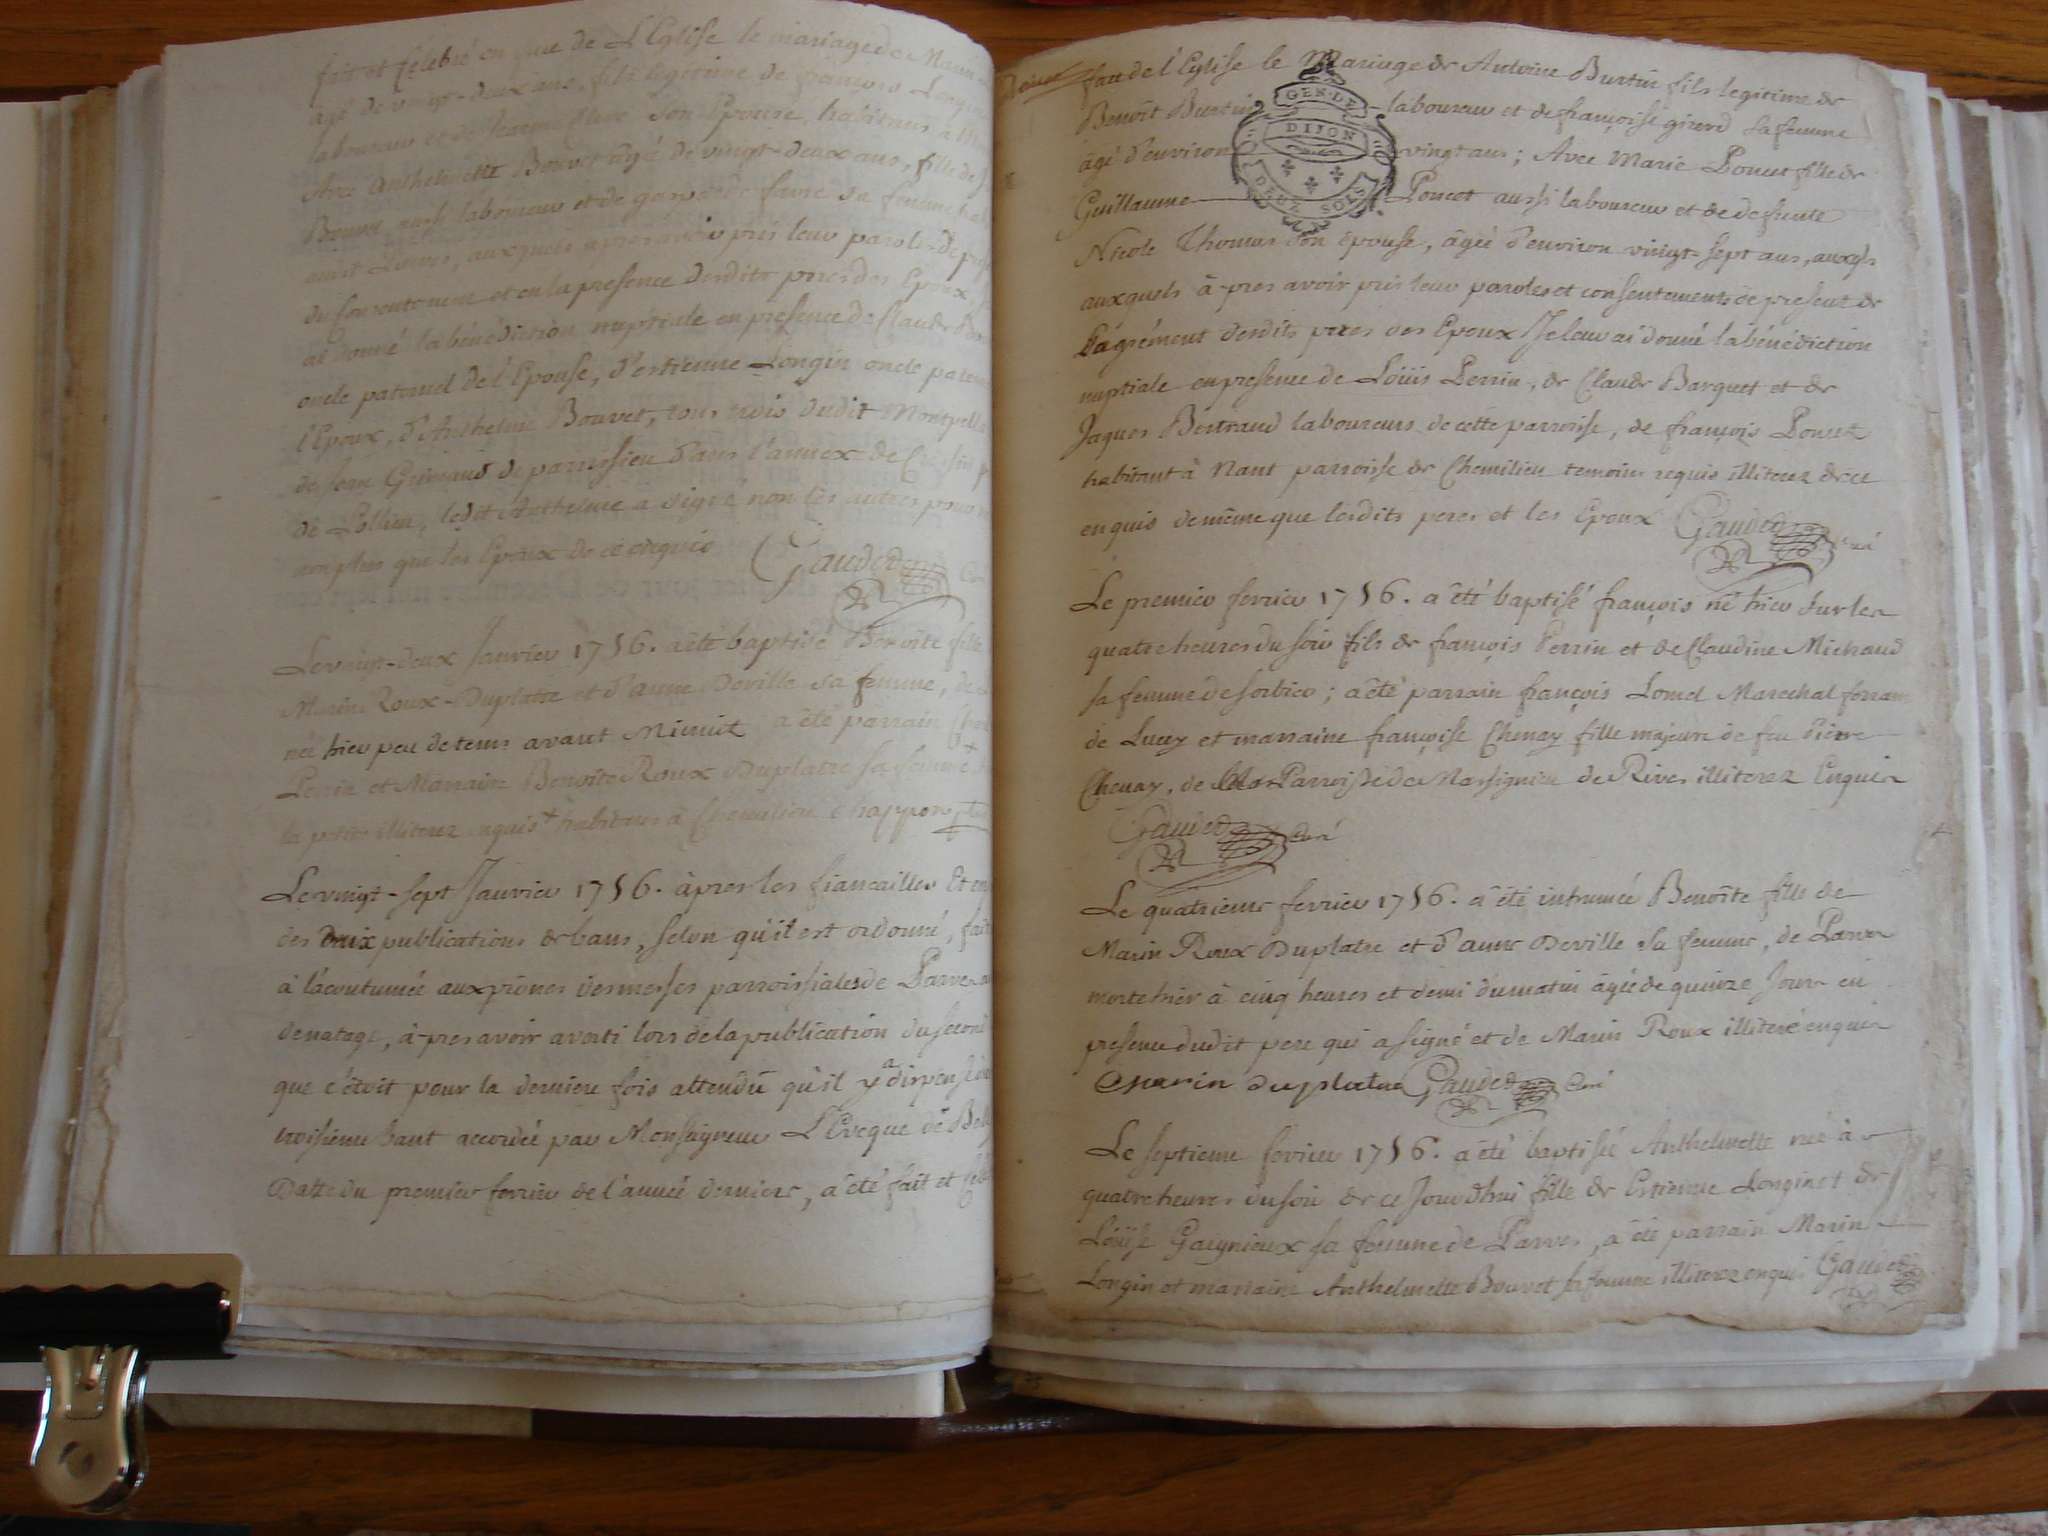 fait et célébré en face de L'Eglise le mariage de Marin
âgé de vingt-deux ans, fils legitime de françois Longin
laboureur et de son Epouse, habitans à
Avec Anthelmette Bouvet âgée de vingt-deux ans, fille de
Bouvet aussi laboureur et de sa femme
auxquels apres avoir pris leur paroles de
du consentement et en la presence desdits peres des Epoux
ai donné la bénédiction nuptiale en presence de Claude
oncle paternel de l'Epouse, d'estienne Longin oncle pater
l'Epoux, d'Anthelme Bouvet, tous trois dudit
de Jean de parrissieu dans l'annexe de
de Pollieu, ledit Anthelme a signé non les autres
non plus que les Epoux de ce enquis Gaudet
Le vingt-deux Janvier 1756. a été baptisé Benoîte fille
Marin Roux-Duplatre et d'anne Deville sa femme, de
née hier peu de tems avant Minuit a été parrain
Perrin et Marraine Benoîte Roux Duplatre sa femme
la petite illiterez enquis habitans à Chemilieu
Le vingt-sept Janvier 1756. àpres les fiançailles Et
des deux publications de bans, selon qu'il est ordonné, fait
à l'acoutumée aux prônes des messes parroissiales de Parves
de natage, à-pres avoir averti lors de la publication du second
que c'étoit pour la derniere fois attendu qu'il y a dispense
troisiéme bant accordée par Monseigneur L'Eveque de
Datte du premier fevrier de l'année derniere, a été fait et
face de l'Eglise le Mariage de Antoine Burtin fils legitime de
Benoît Burtin laboureur et de françoise girerd sa femme
GEN·DE
DIJON
DEUX SOLS
âgé d'environ vingt ans; Avec Marie Poncet fille de
Guillaume Poncet aussi laboureur et de defunte
Nicole Thomas son épouse, âgée d'environ vingt-sept ans,
auxquels à-pres avoir pris leur paroles et consentements de present de
L'agrément desdits peres des Epoux Je leur ai donné la bénédiction
nuptiale en presence de Loüis Perrin, de Claude Barquet et de
Jaques Bertrand laboureurs de cette parroisse, de françois Poncet
habitant à Nant parroisse de Chemilieu temoins requis illiterez de ce
enquis de même que lesdits peres et les Epoux Gaudet Curé
Le premier fevrier 1756. a été baptisé françois né hier sur les
quatre heures du soir fils de françois Perrin et de Claudine Michaud
sa femme de sorbier; a été parrain françois Lomel Marechal ferrant
de Lucey et marraine françoise Chenay fille majeure de feu Pierre
Chenay, de la Parroisse de Massignieu de Rives illiterez Enquis
Gaudet Curé
Le quatrieme fevrier 1756. a été inhumée Benoîte fille de
Marin Roux Duplatre et d'anne Deville sa femme, de Parves
morte hier à cinq heures et demi du matin âgée de quinze Jours en
presence dudit pere qui a signé et de Marin Roux illiteré enquis
Marin duplatre Gaudet Curé
Le septieme fevrier 1756. a été baptisée Anthelmette née à
quatre heures du soir de ce Jourdhui fille de Estienne Longin et de
Loüise Gaignieux sa femme de Parves, a été parrain Marin
Longin et marraine Anthelmette Bouvet sa femme illiterez enquis Gaudet